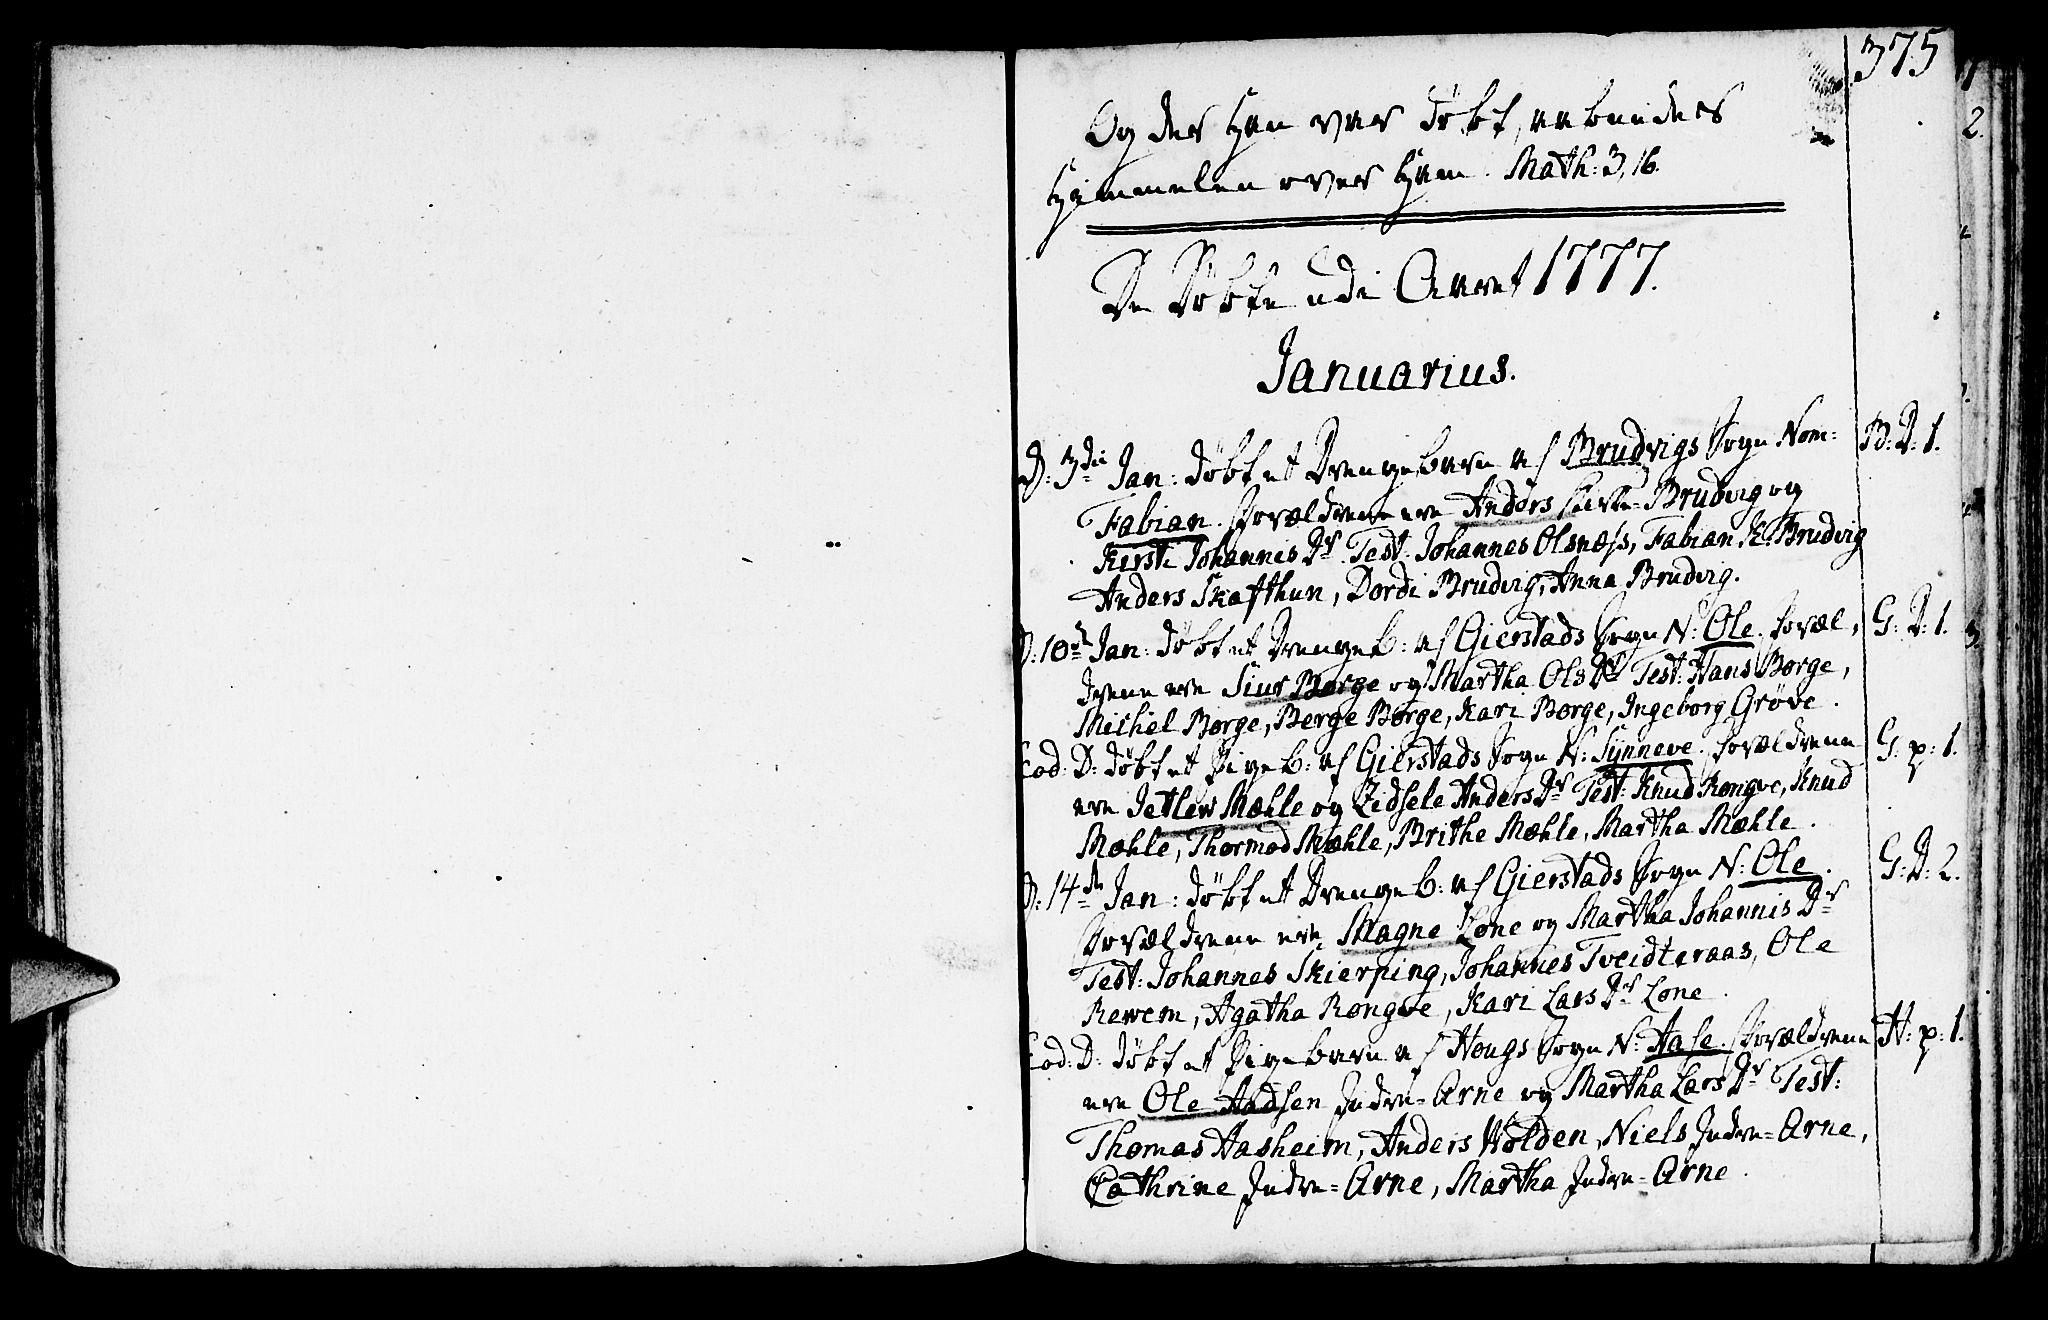 375
Og der Han var døbt, aabnedes
Himmelen over Ham. Math: 3, 16.
De Døbte udi Aaret 1777.
Januarius.
D: 3die Jan: døbt et Drengebarn af Brudvigs Sogn Nom: B: D: 1.
Fabian. Forældrene ere Anders Brudvig og
Kirsti Johannis Dr. Test: Johannes Olsnæss, Fabian K. Brudvig
Anders Skafthun, Dordi Brudvig, Anna Brudvig.
D: 10de Jan: døbt et Drengeb: af Gierstads Sogn N: Ole. Foræl, G: D: 1.
drene ere Siur Borge og Martha Ols Dr Test: Hans Borge,
Michel Borge, Berge Borge, Kari Borge, Ingeborg Grøve.
Eod: D: døbt et Pigeb: af Gierstads Sogn N: Synneve. Forældrene G: p: 1.
ere Detlew Mæhle og Zidsele Anders Dr Test: Knud Rongve, Knud
Mæhle, Thormod Mæhle, Brithe Mæhle, Martha Mæhle.
D: 14de Jan: døbt et Drengeb: af Gierstads Sogn N: Ole. G: D: 2.
Forældrene ere Magne Lone og Martha Johannis Dr
Test: Johannes Skierping, Johannes Tveidteraas, Ole
Rewem, Agatha Rongve, Kari Lars Dr Lone.
Eod: D: døbt et Pigebarn af Hougs Sogn N: Aase. Forældrene H: p: 1.
ere Ole Aadsen Indre-Arne og Martha Lars Dr Test:
Thomas Aasheim, Anders Wolden, Niels Indre-Arne,
Cathrine Indre-Arne, Martha Indre-Arne.